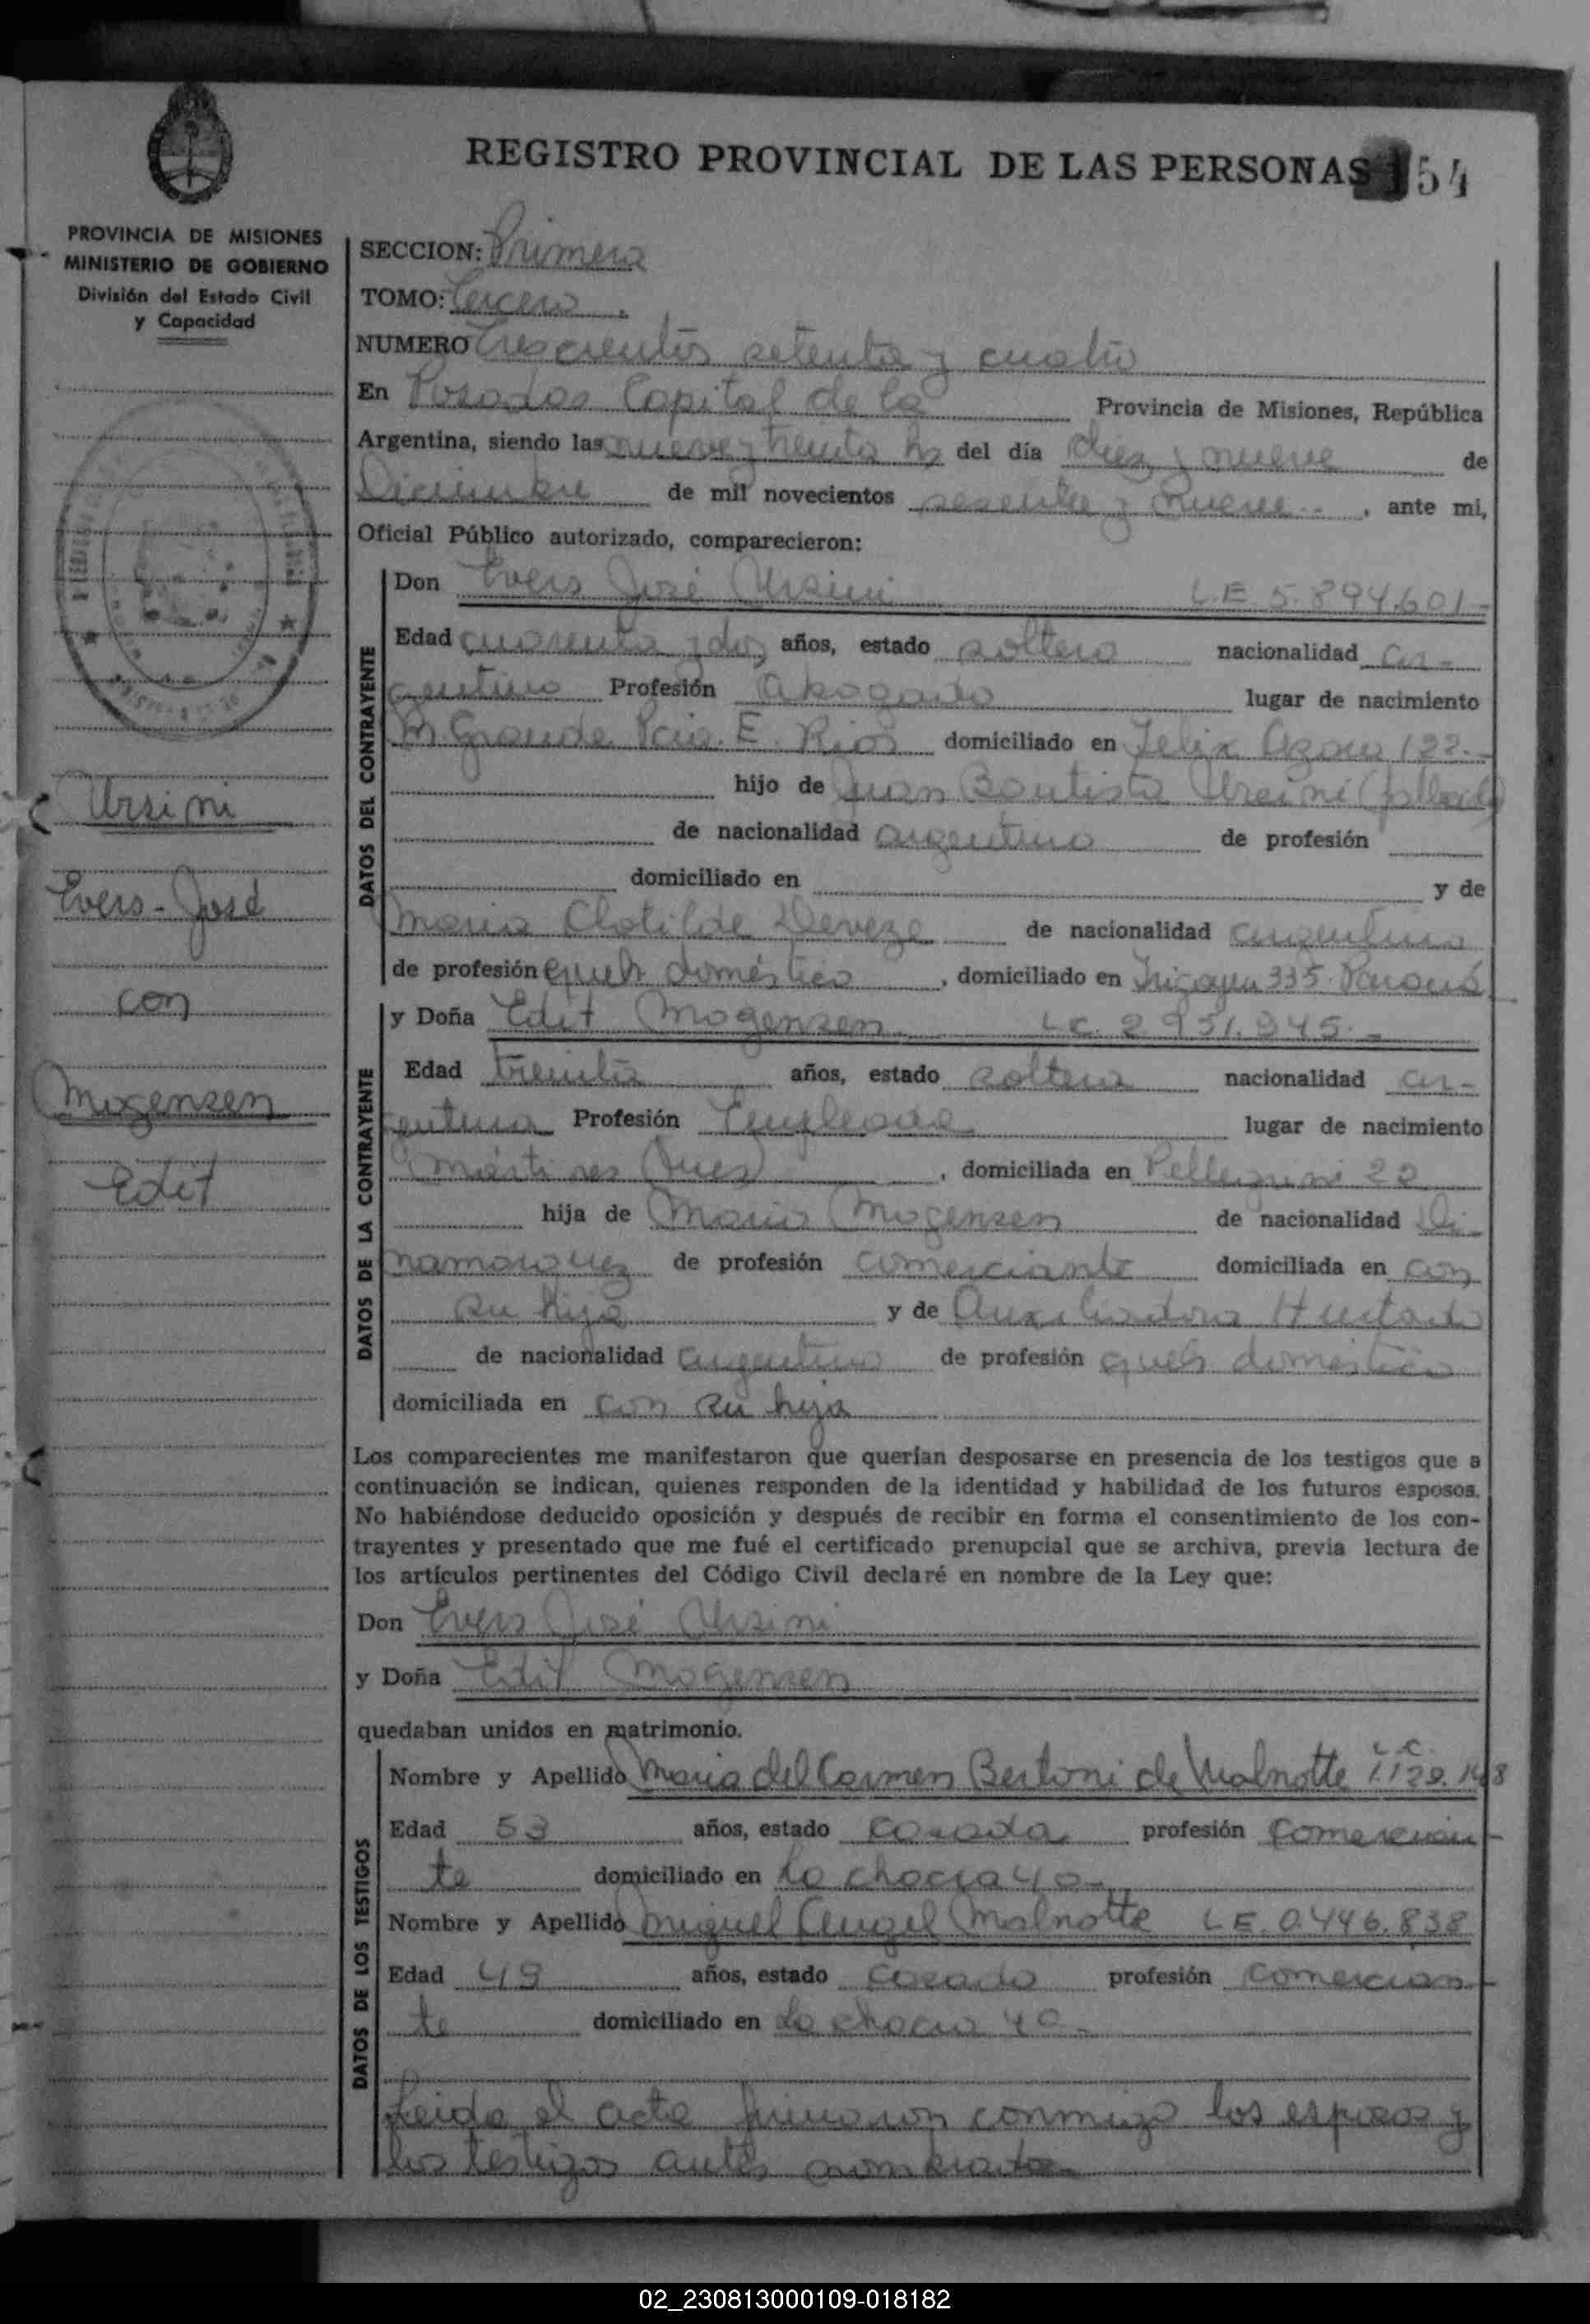 REGISTRO PROVINCIAL DE LAS PERSONAS 154
PROVINCIA DE MISIONES
MINISTERIO DE GOBIERNO
División del Estado Civil
y Capacidad
Ursini
Evers - José
con
Mogensen
Edit
SECCION: Primera
TOMO: Tercero
NUMERO Trescientos setenta y cuatro
En Posadas Capital de la Provincia de Misiones, República
Argentina, siendo las nueve y treinta hs del día diez y nueve de
Diciembre de mil novecientos sesenta y nueve , ante mi,
Oficial Público autorizado, comparecieron:
DATOS DEL CONTRAYENTE
Don Evers José Ursini L.E 5.894.601-
Edad cuarenta y dos años, estado soltero nacionalidad ar-
gentino Profesión Abogado lugar de nacimiento
M. Grande Pcia. E. Rios domiciliado en Felix Azara 122.-
hijo de Juan Bautista Ursini
de nacionalidad argentino de profesión
domiciliado en y de
Maria Clotilde Deveze de nacionalidad argentina
de profesión queh domésticos , domiciliado en 335 Paraná
DATOS DE LA CONTRAYENTE
y Doña Edit Mogensen L.C. 2.951.945.-
Edad treinta años, estado soltera nacionalidad ar-
gentina Profesión Empleada lugar de nacimiento
Mártires , domiciliada en Pellegrini 22
hija de Mario Mogensen de nacionalidad di
namarquez de profesión comerciante domiciliada en con
su hija y de Auxiliadora Hurtado
de nacionalidad argentina de profesión queh domésticos
domiciliada en con su hija
Los comparecientes me manifestaron que querían desposarse en presencia de los testigos que a
continuación se indican, quienes responden de la identidad y habilidad de los futuros esposos.
No habiéndose deducido oposición y después de recibir en forma el consentimiento de los con-
trayentes y presentado que me fué el certificado prenupcial que se archiva, previa lectura de
los artículos pertinentes del Código Civil declaré en nombre de la Ley que:
Don Evers José Ursini
y Doña Edit Mogensen
quedaban unidos en matrimonio.
DATOS DE LOS TESTIGOS
Nombre y Apellido Maria del Carmen Bertoni de Malnotte L.C.
Edad 53 años, estado casada profesión Comercian-
te domiciliado en La chacra 40-
Nombre y Apellido Miguel Angel Malnotte L.E. 0.446.838
Edad 49 años, estado casado profesión comercian-
te domiciliado en La chacra 40-
Leida el acta firmaron conmigo los esposos y
los testigos antes nombrados
02_230813000109-018182